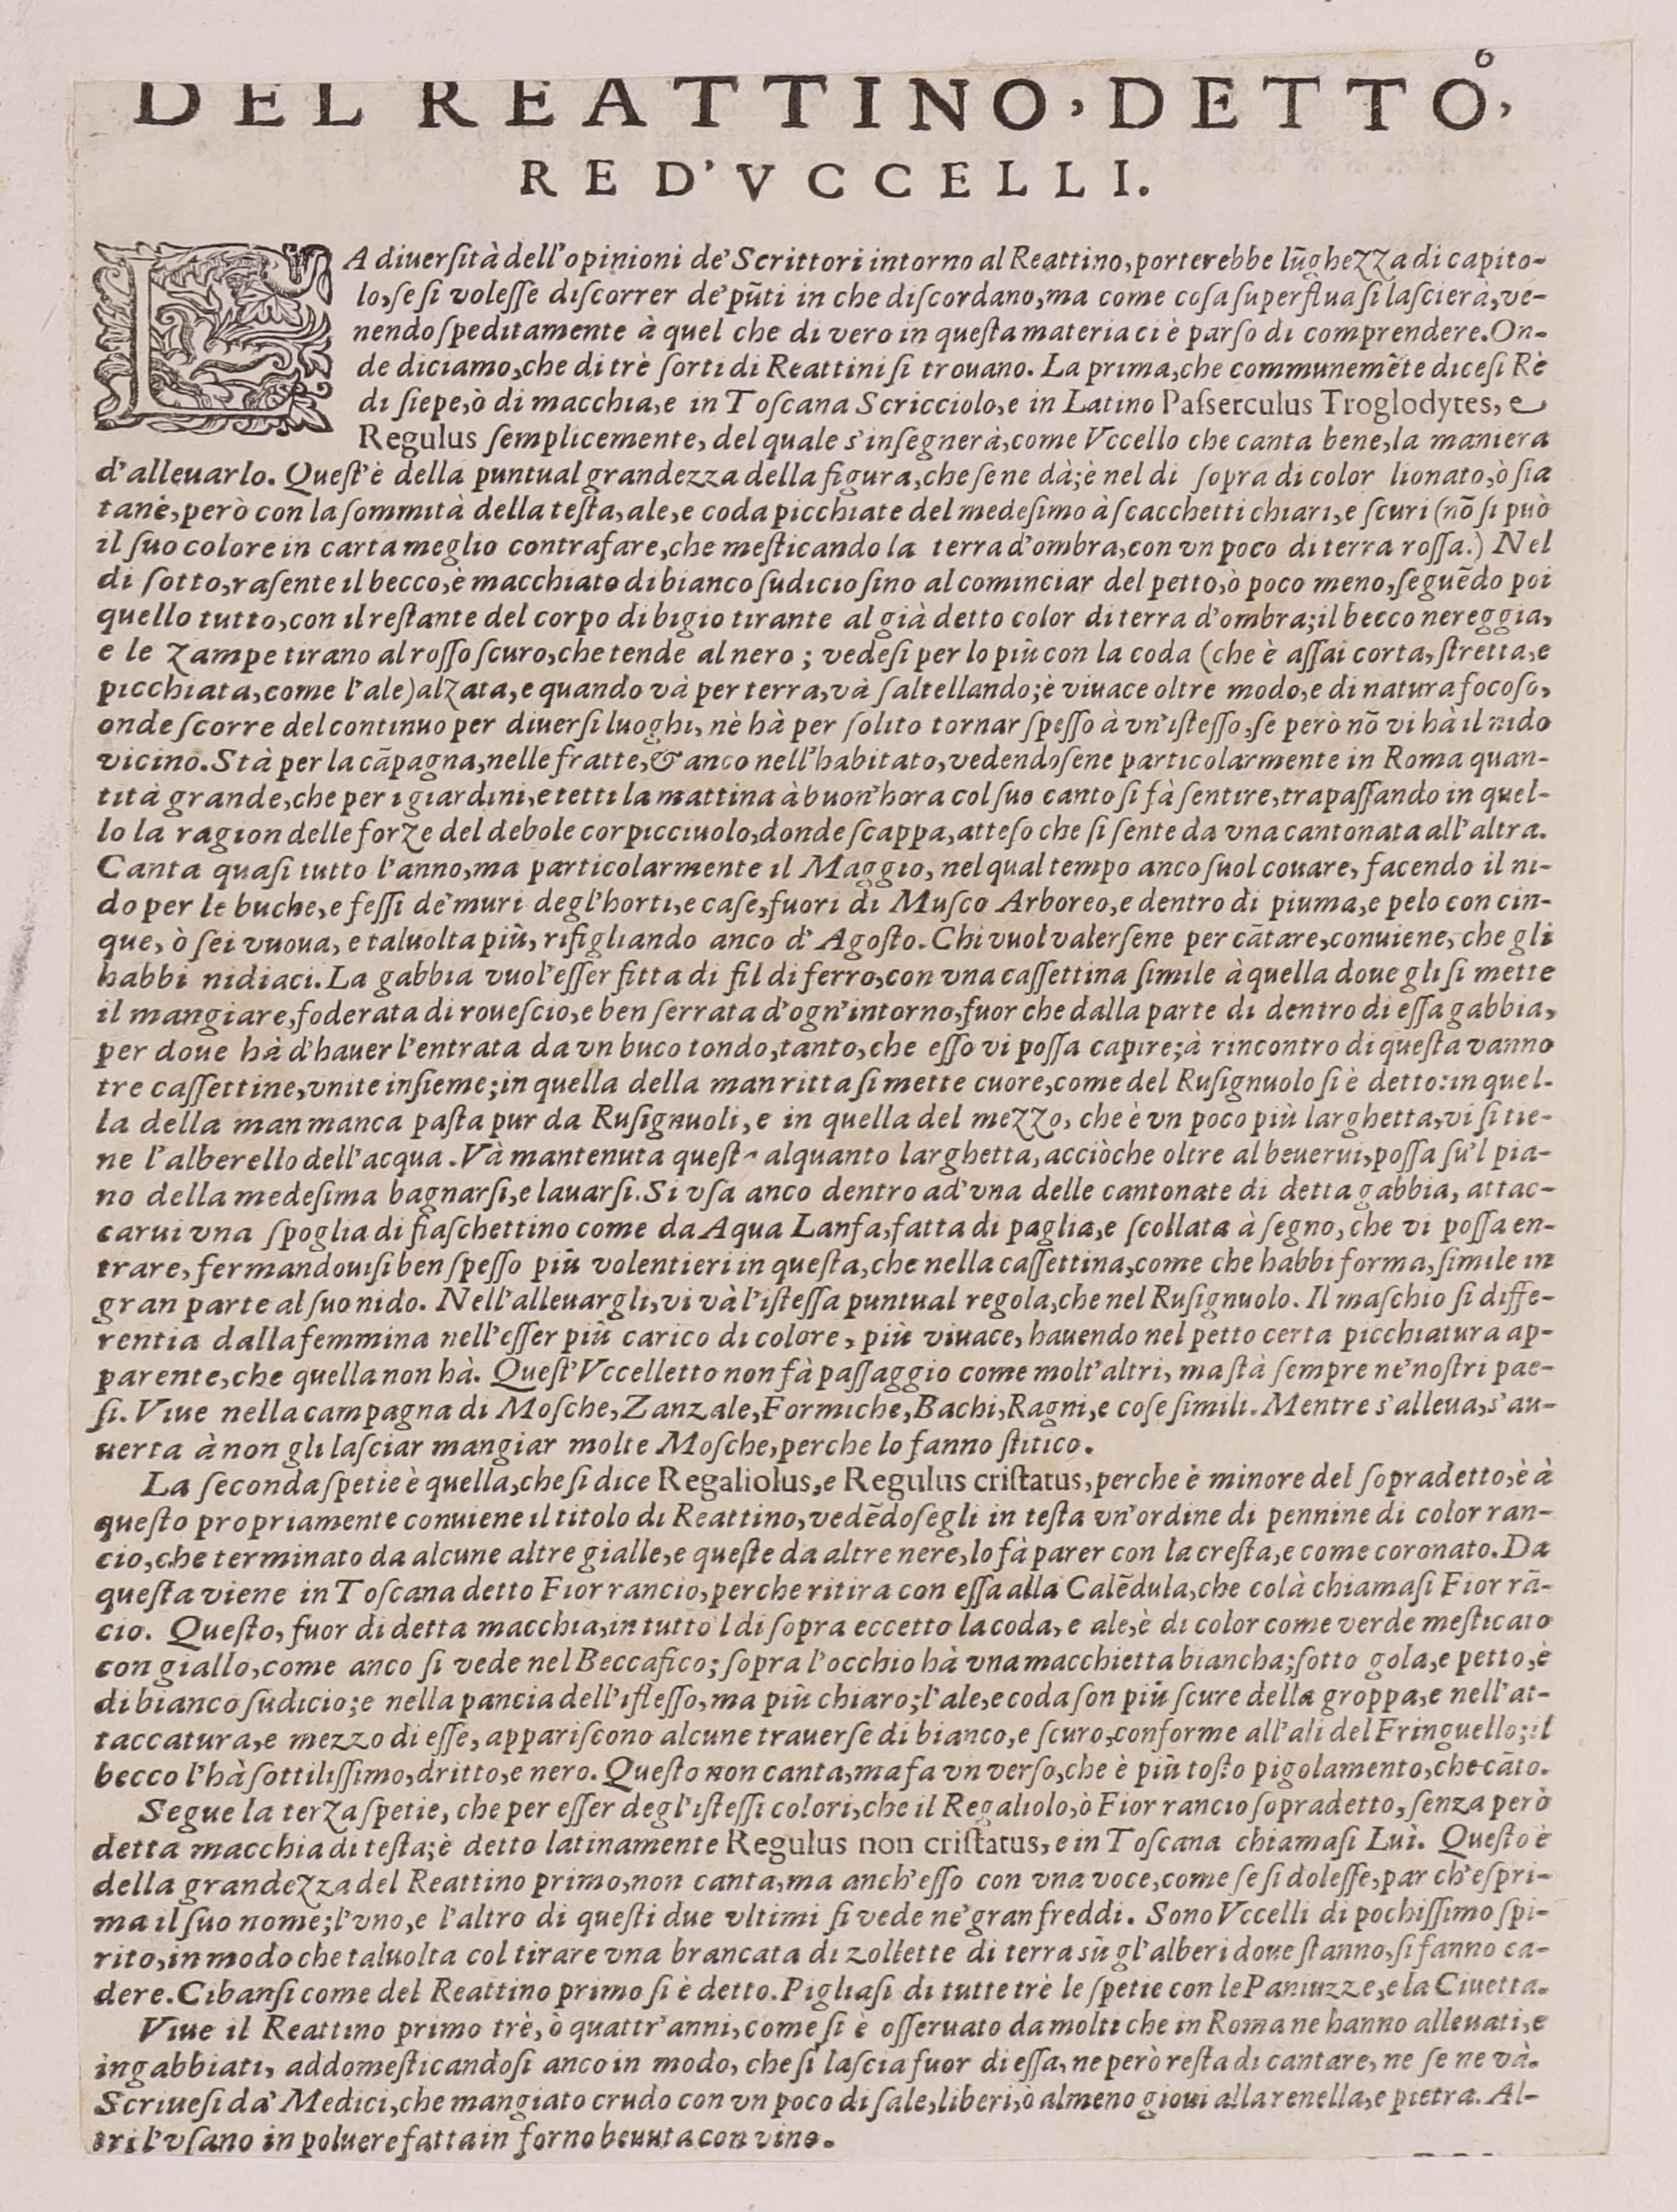 6
DEL REATTINO, DETTO,
RE D'VCCELLI.
LA diuersità dell'opinioni de' Scrittori intorno al Reattino, porterebbe lũghezza di capito-
lo, se si volesse discorrer de' pũti in che discordano, ma come cosa superflua si lascierà, ve-
nendo speditamente à quel che di vero in questa materia ci è parso di comprendere. On-
de diciamo, che di trè sorti di Reattini si trouano. La prima, che communemẽte dicesi Rè
di siepe, ò di macchia, e in Toscana Scricciolo, e in Latino Passerculus Troglodytes, e
Regulus semplicemente, del quale s'insegnerà, come Vccello che canta bene, la maniera
d'alleuarlo. Quest'è della puntual grandezza della figura, che se ne dà; è nel di sopra di color lionato, ò sia
tanè, però con la sommità della testa, ale, e coda picchiate del medesimo à scacchetti chiari, e scuri (nõ si può
il suo colore in carta meglio contrafare, che mesticando la terra d'ombra, con vn poco di terra rossa.) Nel
di sotto, rasente il becco, è macchiato di bianco sudicio sino al cominciar del petto, ò poco meno, seguẽdo poi
quello tutto, con il restante del corpo di bigio tirante al già detto color di terra d'ombra; il becco nereggia,
e le zampe tirano al rosso scuro, che tende al nero; vedesi per lo più con la coda (che è assai corta, stretta, e
picchiata, come l'ale) alzata, e quando và per terra, và saltellando; è viuace oltre modo, e di natura focoso,
onde scorre del continuo per diuersi luoghi, nè hà per solito tornar spesso à vn'istesso, se però nõ vi hà il nido
vicino. Stà per la cãpagna, nelle fratte, & anco nell'habitato, vedendosene particolarmente in Roma quan-
tità grande, che per i giardini, e tetti la mattina à buon'hora col suo canto si fà sentire, trapassando in quel-
lo la ragion delle forze del debole corpicciuolo, donde scappa, atteso che si sente da vna cantonata all'altra.
Canta quasi tutto l'anno, ma particolarmente il Maggio, nel qual tempo anco suol couare, facendo il ni-
do per le buche, e fessi de' muri degl'horti, e case, fuori di Musco Arboreo, e dentro di piuma, e pelo con cin-
que, ò sei vuoua, e taluolta più, rifigliando anco d'Agosto. Chi vuol valersene per cãtare, conuiene, che gli
habbi nidiaci. La gabbia vuol'esser fitta di fil di ferro, con vna cassettina simile à quella doue gli si mette
il mangiare, foderata di rouescio, e ben serrata d'ogn'intorno, fuor che dalla parte di dentro di essa gabbia,
per doue hà d'hauer l'entrata da vn buco tondo, tanto, che esso vi possa capire; à rincontro di questa vanno
tre cassettine, vnite insieme; in quella della man ritta si mette cuore, come del Rusignuolo si è detto: in quel-
la della man manca pasta pur da Rusignuoli, e in quella del mezzo, che è vn poco più larghetta, vi si tie-
ne l'alberello dell'acqua. Và mantenuta questa alquanto larghetta, acciòche oltre al beuerui, possa su'l pia-
no della medesima bagnarsi, e lauarsi. Si vsa anco dentro ad'vna delle cantonate di detta gabbia, attac-
carui vna spoglia di fiaschettino come da Aqua Lanfa, fatta di paglia, e scollata à segno, che vi possa en-
trare, fermandouisi ben spesso più volentieri in questa, che nella cassettina, come che habbi forma, simile in
gran parte al suo nido. Nell'alleuargli, vi và l'istessa puntual regola, che nel Rusignuolo. Il maschio si diffe-
rentia dalla femmina nell'esser più carico di colore, più viuace, hauendo nel petto certa picchiatura ap-
parente, che quella non hà. Quest'Vccelletto non fà passaggio come molt'altri, ma stà sempre ne' nostri pae-
si. Viue nella campagna di Mosche, Zanzale, Formiche, Bachi, Ragni, e cose simili. Mentre s'alleua, s'au-
uerta à non gli lasciar mangiar molte Mosche, perche lo fanno stitico.
La seconda spetie è quella, che si dice Regaliolus, e Regulus cristatus, perche è minore del sopradetto, è à
questo propriamente conuiene il titolo di Reattino, vedẽdosegli in testa vn'ordine di pennine di color ran-
cio, che terminato da alcune altre gialle, e queste da altre nere, lo fà parer con la cresta, e come coronato. Da
questa viene in Toscana detto Fior rancio, perche ritira con essa alla Calẽdula, che colà chiamasi Fior rã-
cio. Questo, fuor di detta macchia, in tutto'l di sopra eccetto la coda, e ale, è di color come verde mesticato
con giallo, come anco si vede nel Beccafico; sopra l'occhio hà vna macchietta biancha; sotto gola, e petto, è
di bianco sudicio; e nella pancia dell'istesso, ma più chiaro; l'ale, e coda son più scure della groppa, e nell'at-
taccatura, e mezzo di esse, appariscono alcune trauerse di bianco, e scuro, conforme all'ali del Fringuello; il
becco l'hà sottilissimo, dritto, e nero. Questo non canta, ma fa vn verso, che è più tosto pigolamento, che cãto.
Segue la terza spetie, che per esser degl'istessi colori, che il Regaliolo, ò Fior rancio sopradetto, senza però
detta macchia di testa; è detto latinamente Regulus non cristatus, e in Toscana chiamasi Luì. Questo è
della grandezza del Reattino primo, non canta, ma anch'esso con vna voce, come se si dolesse, par ch'espri-
ma il suo nome; l'vno, e l'altro di questi due vltimi si vede ne' gran freddi. Sono Vccelli di pochissimo spi-
rito, in modo che taluolta col tirare vna brancata di zollette di terra sù gl'alberi doue stanno, si fanno ca-
dere. Cibansi come del Reattino primo si è detto. Pigliasi di tutte trè le spetie con le Paniuzze, e la Ciuetta.
Viue il Reattino primo trè, ò quattr'anni, come si è osseruato da molti che in Roma ne hanno alleuati, e
ingabbiati, addomesticandosi anco in modo, che si lascia fuor di essa, ne però resta di cantare, ne se ne và.
Scriuesi da' Medici, che mangiato crudo con vn poco di sale, liberi, ò almeno gioui alla renella, e pietra. Al-
tri l'vsano in poluere fatta in forno beuuta con vino.